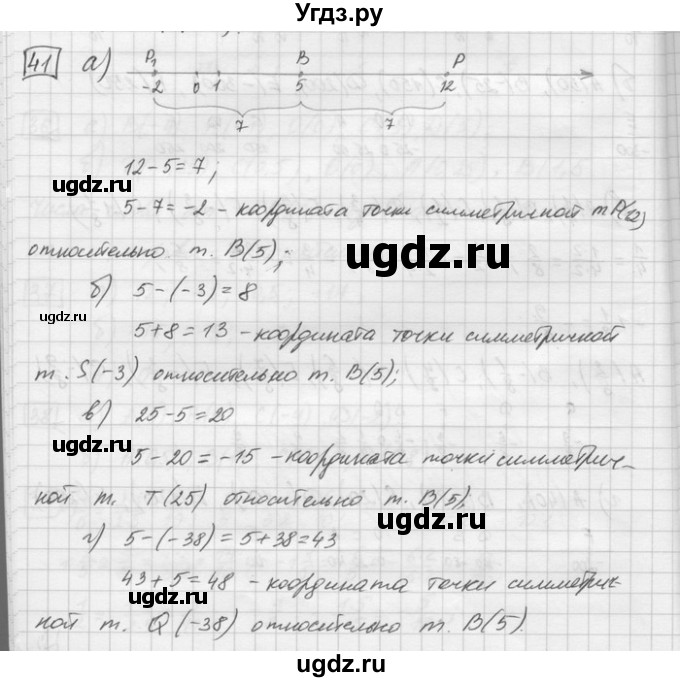 Угдз.ру
41 а) P₁ B P
-2 0 1 5 12
7 7
12-5=7;
5-7=-2 - координата точки симметричной т P(12)
относительно т. B(5);
б) 5-(-3)=8
5+8=13 - координата точки симметричной
т. S(-3) относительно т. B(5);
в) 25-5=20
5-20=-15 - координата точки симметрич-
ной т. T(25) относительно т. B(5);
г) 5-(-38)=5+38=43
43+5=48 - координата точки симметрич-
ной т. Q(-38) относительно т. B(5).
ugdz.ru
ugdz.ru
ugdz.ru
ugdz.ru
ugdz.ru
ugdz.ru
ugdz.ru
ugdz.ru